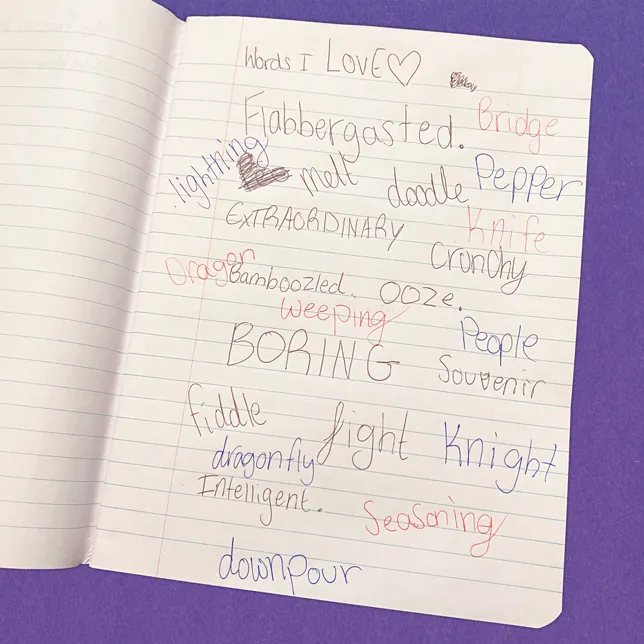 Words I LOVE♡
Flabbergasted. Bridge
lightning melt doodle Pepper
EXTRAORDINARY Knife
Crunchy
Dragon Bamboozled. OOZe.
Weeping People
BORING Souvenir
fiddle fight Knight
dragonfly
Intelligent. Seasoning
downpour